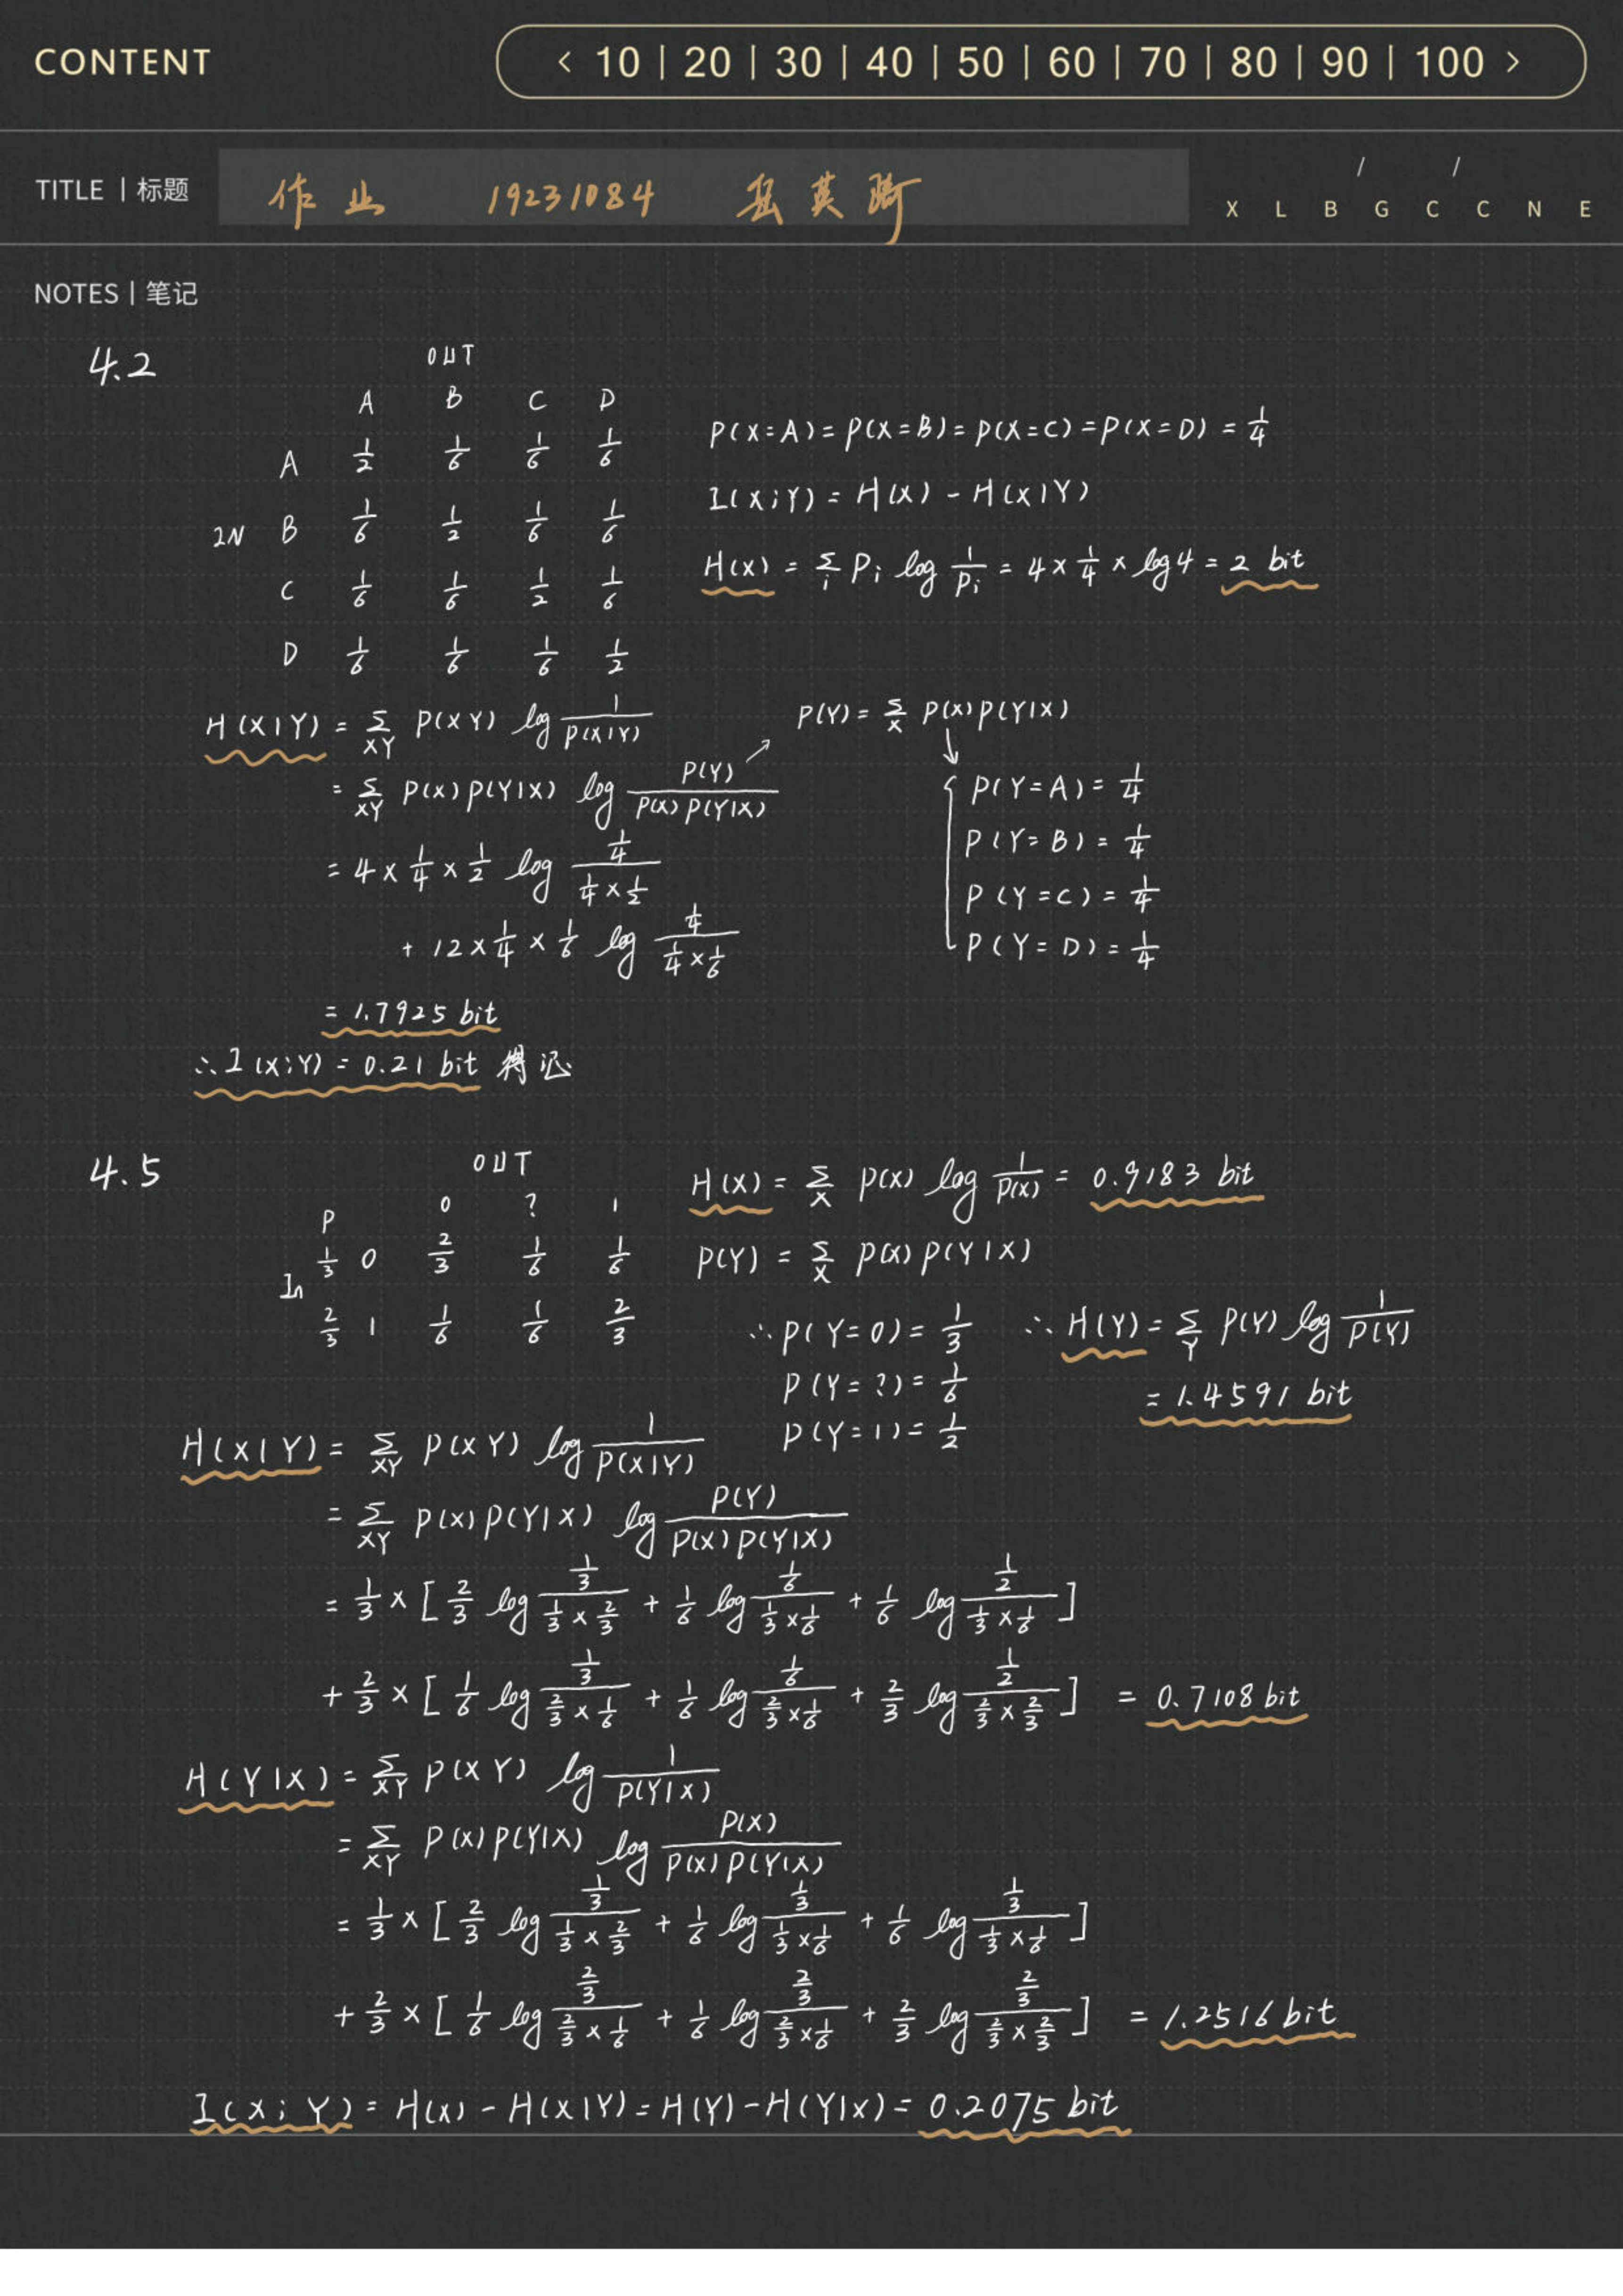 CONTENT
< 10 | 20 | 30 | 40 | 50 | 60 | 70 | 80 | 90 | 100 >
TITLE | 标题 作业 19231084 岳英
/ /
X L B G C C N E
NOTES | 笔记
4.2
OUT
A B C D
A 1/2 1/6 1/6 1/6
IN B 1/6 1/2 1/6 1/6
C 1/6 1/6 1/2 1/6
D 1/6 1/6 1/6 1/2
P(X=A)=P(X=B)=P(X=C)=P(X=D)=1/4
I(X;Y)=H(X)-H(X|Y)
H(X)=Σ_i P_i log 1/P_i = 4×1/4×log4 = 2 bit
H(X|Y)=Σ_XY P(XY) log 1/P(X|Y)
=Σ_XY P(X)P(Y|X) log P(Y)/(P(X)P(Y|X))
=4×1/4×1/2 log (1/4)/(1/4×1/2)
+12×1/4×1/6 log (1/4)/(1/4×1/6)
=1.7925 bit
∴I(X;Y)=0.21 bit 得
P(Y)=Σ_X P(X)P(Y|X)
P(Y=A)=1/4
P(Y=B)=1/4
P(Y=C)=1/4
P(Y=D)=1/4
4.5
OUT
P 0 ? 1
In 1/3 0 2/3 1/6 1/6
2/3 1 1/6 1/6 2/3
H(X)=Σ_X P(X) log 1/P(X) = 0.9183 bit
P(Y)=Σ_X P(X)P(Y|X)
∴P(Y=0)=1/3
P(Y=?)=1/6
P(Y=1)=1/2
∴H(Y)=Σ_Y P(Y) log 1/P(Y)
=1.4591 bit
H(X|Y)=Σ_XY P(XY) log 1/P(X|Y)
=Σ_XY P(X)P(Y|X) log P(Y)/(P(X)P(Y|X))
=1/3×[2/3 log (1/3)/(1/3×2/3) + 1/6 log (1/6)/(1/3×1/6) + 1/6 log (1/2)/(1/3×1/6)]
+2/3×[1/6 log (1/3)/(2/3×1/6) + 1/6 log (1/6)/(2/3×1/6) + 2/3 log (1/2)/(2/3×2/3)] = 0.7108 bit
H(Y|X)=Σ_XY P(XY) log 1/P(Y|X)
=Σ_XY P(X)P(Y|X) log P(X)/(P(X)P(Y|X))
=1/3×[2/3 log (1/3)/(1/3×2/3) + 1/6 log (1/3)/(1/3×1/6) + 1/6 log (1/3)/(1/3×1/6)]
+2/3×[1/6 log (2/3)/(2/3×1/6) + 1/6 log (2/3)/(2/3×1/6) + 2/3 log (2/3)/(2/3×2/3)] = 1.2516 bit
I(X;Y)=H(X)-H(X|Y)=H(Y)-H(Y|X)=0.2075 bit